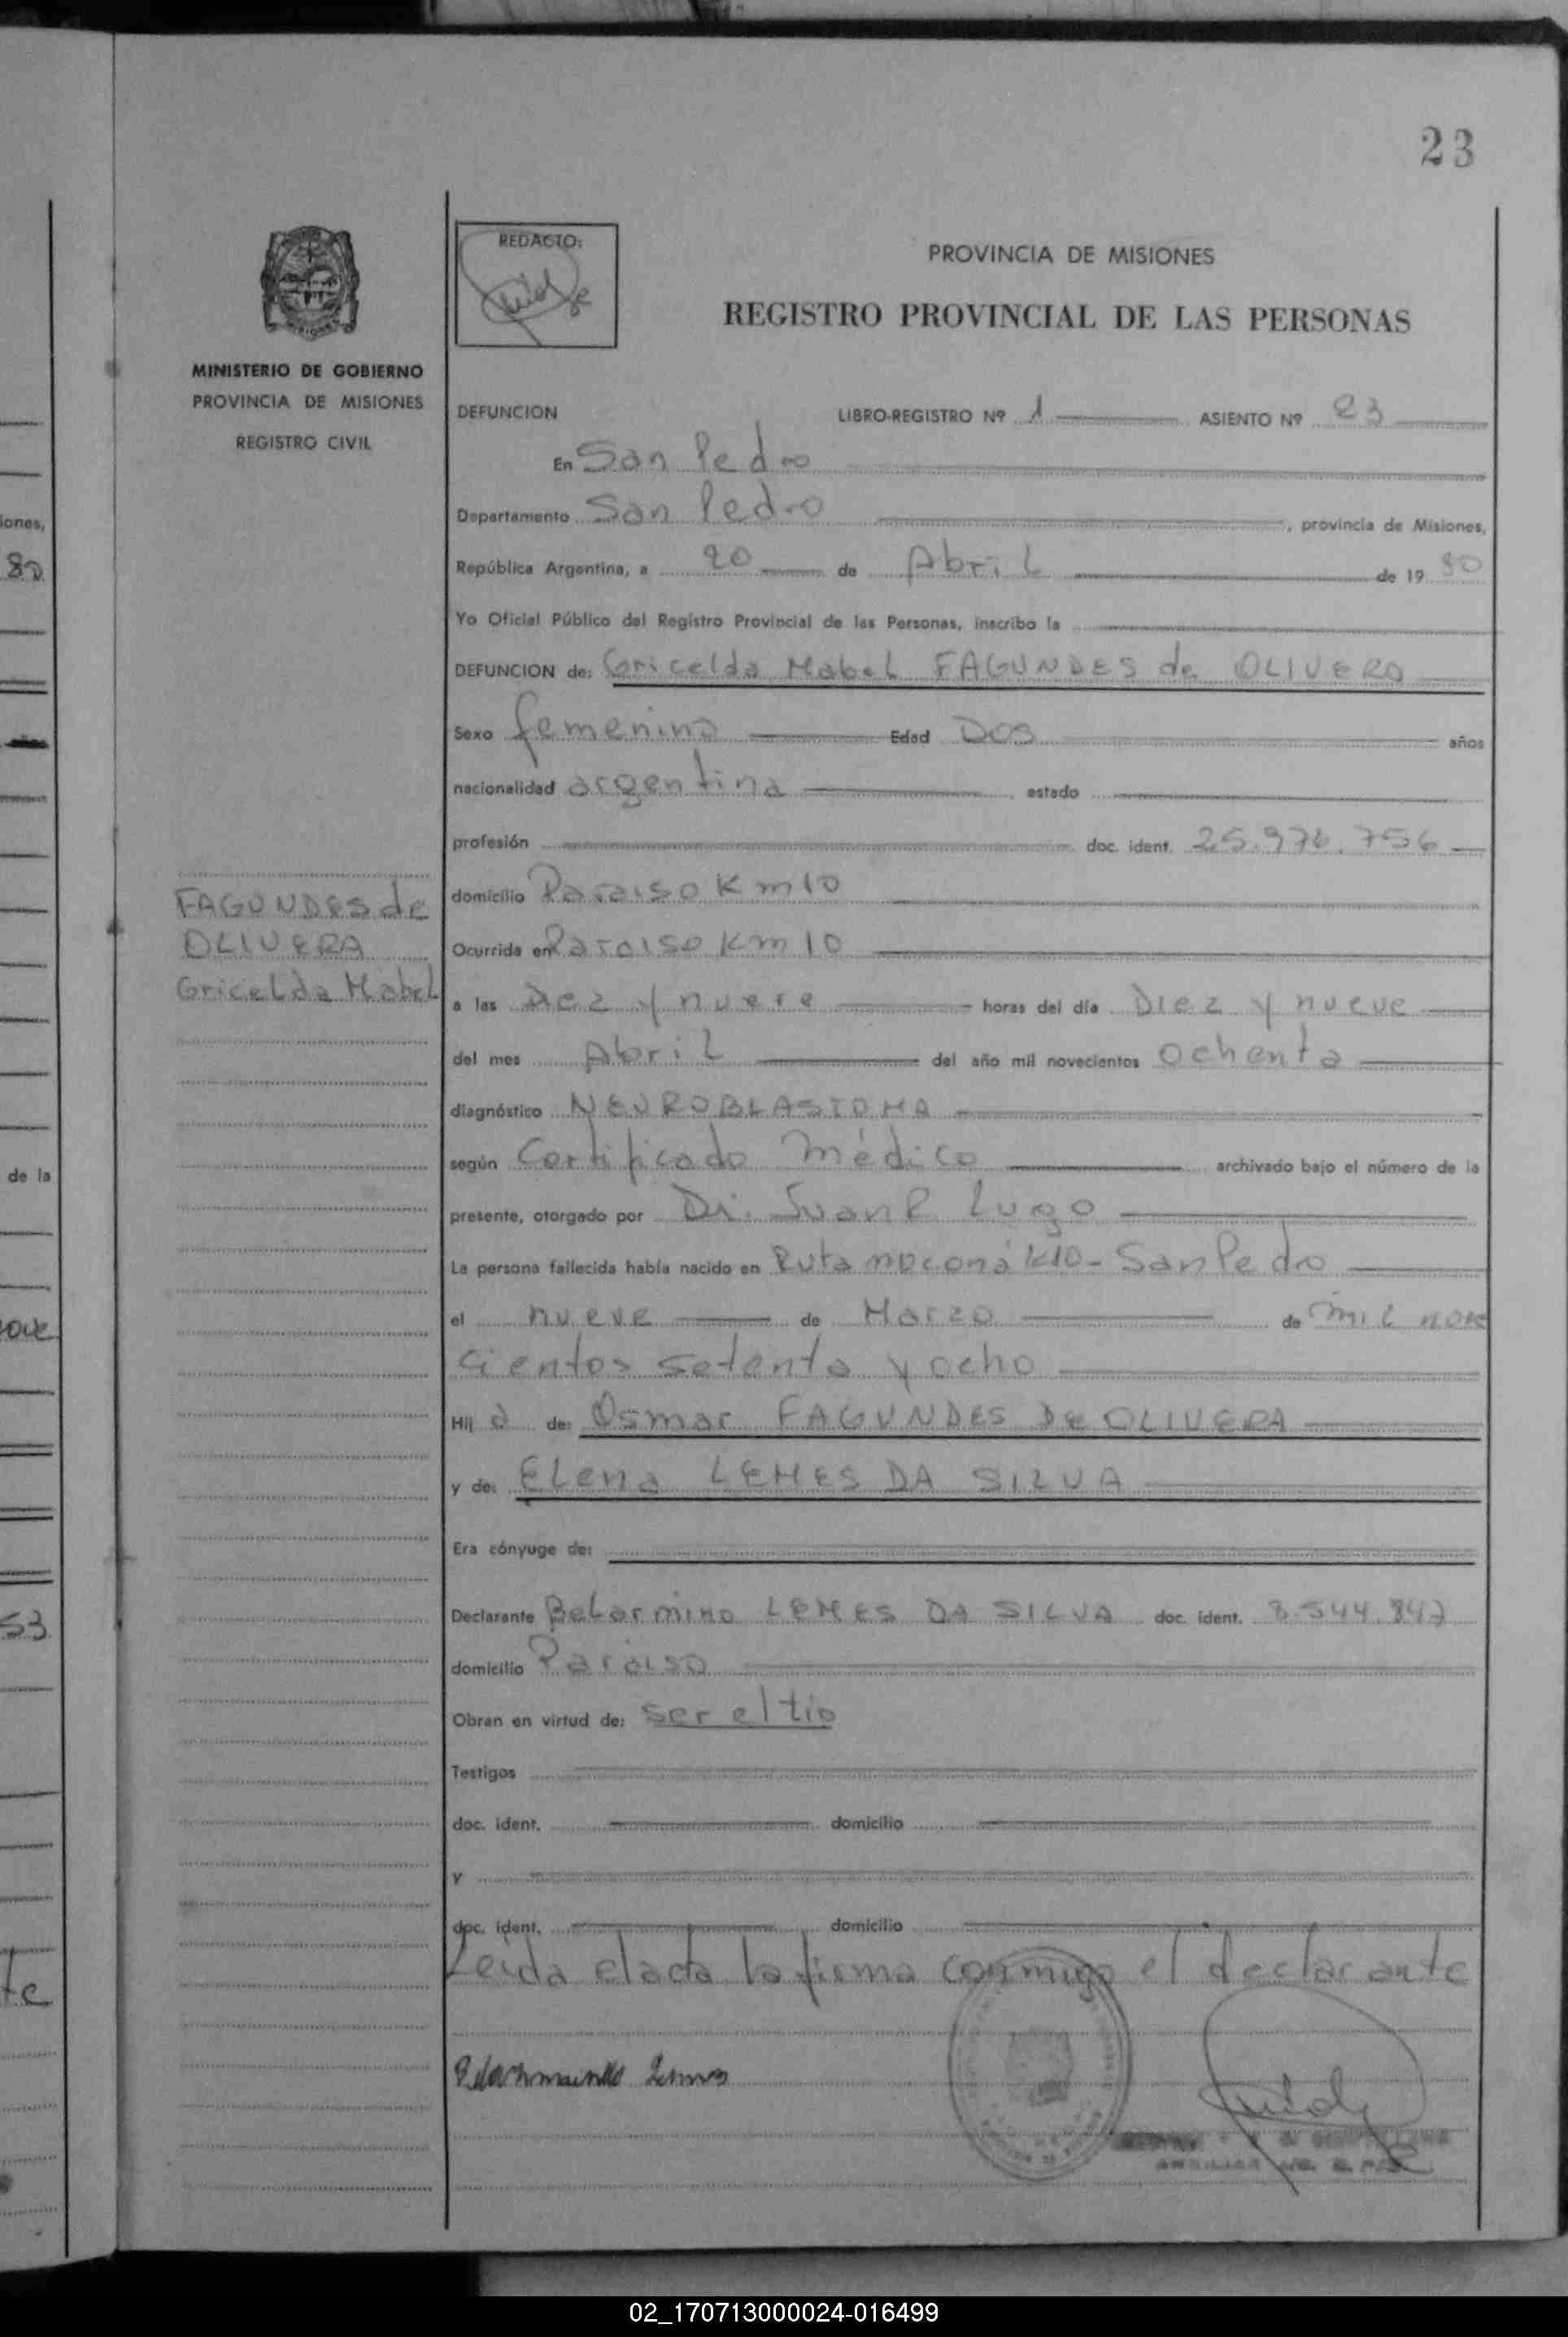 23
REDACTO:
PROVINCIA DE MISIONES
REGISTRO PROVINCIAL DE LAS PERSONAS
MINISTERIO DE GOBIERNO
PROVINCIA DE MISIONES
REGISTRO CIVIL
DEFUNCION LIBRO-REGISTRO Nº 1 ASIENTO Nº 23
En San Pedro
Departamento San Pedro, provincia de Misiones,
República Argentina, a 20 de Abril de 19 80
Yo Oficial Público del Registro Provincial de las Personas, inscribo la
DEFUNCION de: Gricelda Mabel FAGUNDES de OLIVERA
Sexo femenino Edad Dos años
nacionalidad argentina estado
profesión doc. ident. 25.976.756
domicilio Paraiso Km 10
FAGUNDES de
OLIVERA
Gricelda Mabel
Ocurrida en Paraiso Km 10
a las Diez y nueve horas del día Diez y nueve
del mes Abril del año mil novecientos ochenta
diagnóstico NEUROBLASTOMA
según Certificado Médico archivado bajo el número de la
presente, otorgado por Dr. Juan P. Lugo
La persona fallecida había nacido en Ruta moconá K10 - San Pedro
el nueve de Marzo de mil nove
cientos setenta y ocho
Hij a de: Osmar FAGUNDES DE OLIVERA
y de: Elena LEMES DA SILVA
Era cónyuge de:
Declarante Belarmino LEMES DA SILVA doc. ident. 8.544.847
domicilio Paraiso
Obran en virtud de: ser el tio
Testigos
doc. ident. domicilio
y
doc. ident. domicilio
Leida el acta la firma conmigo el declarante
iones,
80
de la
53
te
02_170713000024-016499